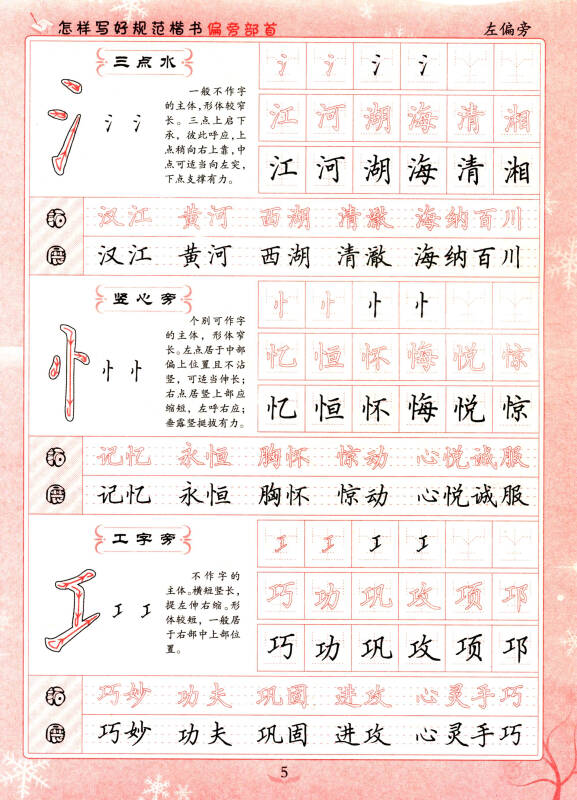 怎样写好规范楷书偏旁部首
左偏旁
三点水
氵 氵 氵 氵
一般不作字
的主体,形体较窄
长。三点上启下
承,彼此呼应,上
点稍向右上靠,中
点可适当向左突,
下点支撑有力。
氵 氵 氵
江 河 湖 海 清 湘
江 河 湖 海 清 湘
拓 汉江 黄河 西湖 清澈 海纳百川
展 汉江 黄河 西湖 清澈 海纳百川
竖心旁
忄 忄 忄 忄
个别可作字
的主体,形体窄
长。左点居于中部
偏上位置且不沾
竖,可适当伸长;
右点居竖上部应
缩短,左呼右应;
垂露竖挺拔有力。
忄 忄 忄
忆 恒 怀 悔 悦 惊
忆 恒 怀 悔 悦 惊
拓 记忆 永恒 胸怀 惊动 心悦诚服
展 记忆 永恒 胸怀 惊动 心悦诚服
工字旁
工 工 工 工
不作字的
主体。横短竖长,
提左伸右缩。形
体较短,一般居
于右部中上部位
置。
工 工 工
巧 功 巩 攻 项 邛
巧 功 巩 攻 项 邛
拓 巧妙 功夫 巩固 进攻 心灵手巧
展 巧妙 功夫 巩固 进攻 心灵手巧
5